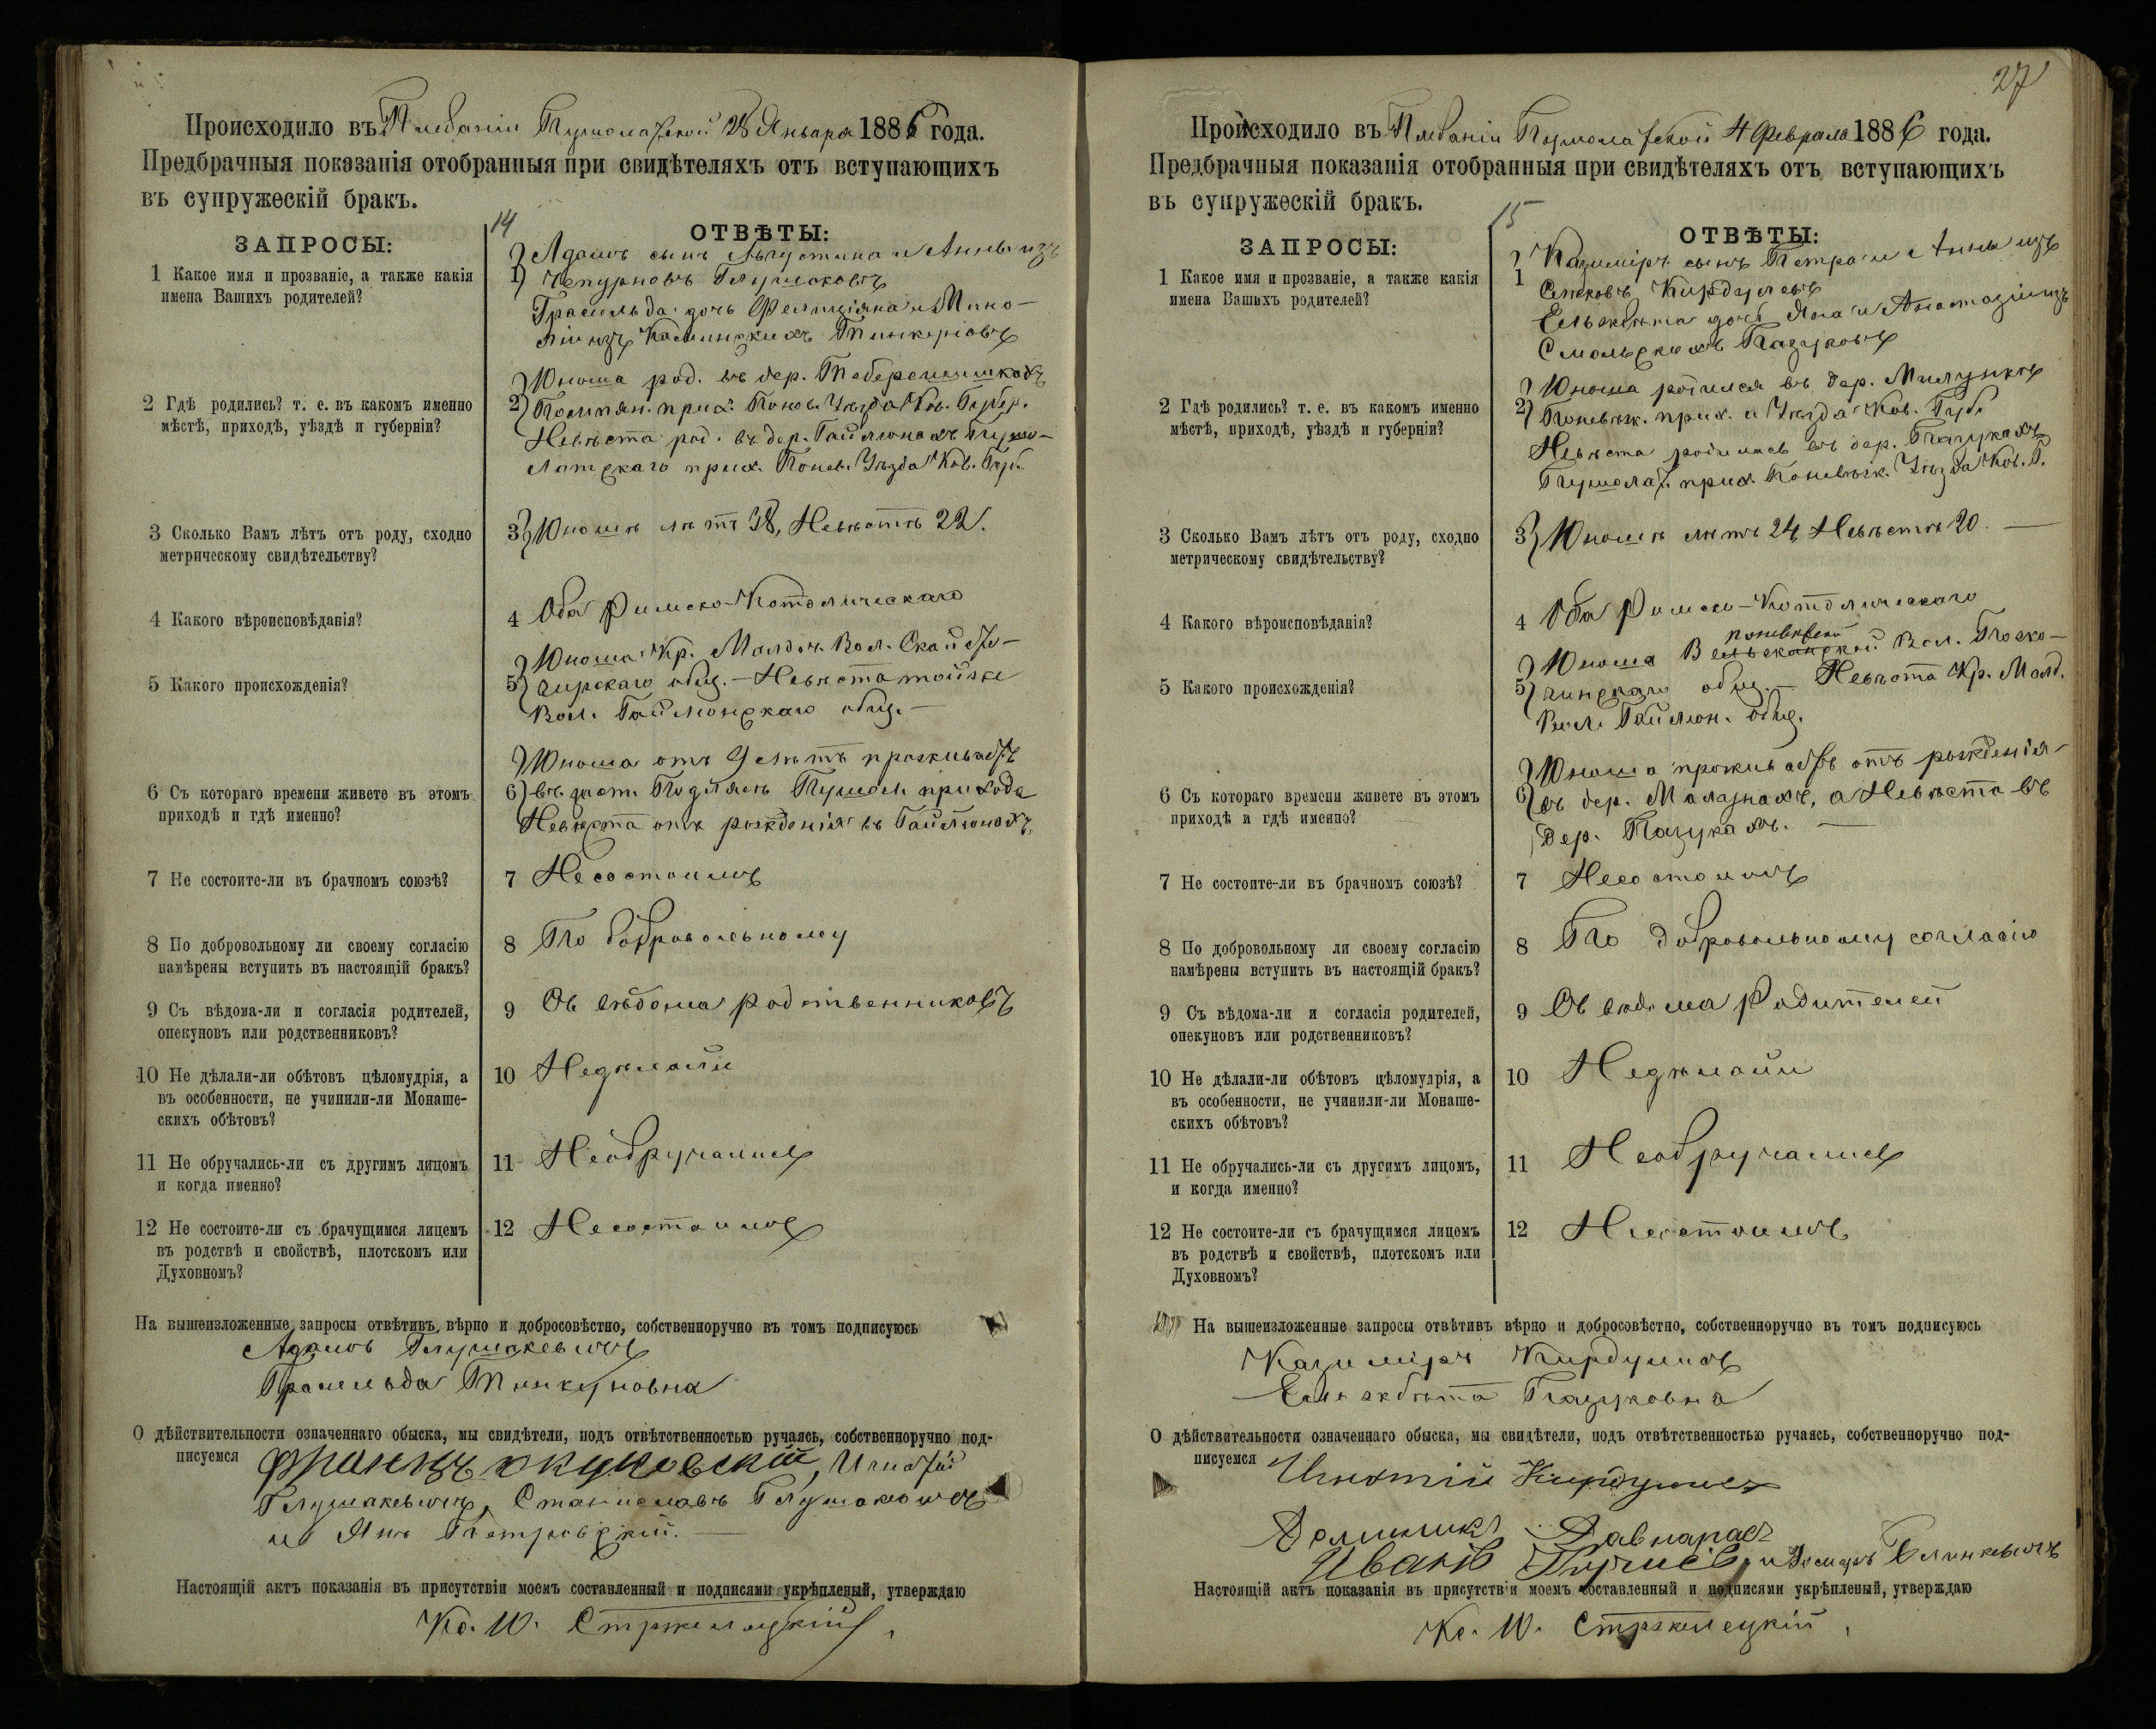 Происходило въ Плебаніи Пушолатской 28 Января 1886 года.
Предбрачныя показанія отобранныя при свидѣтеляхъ отъ вступающихъ
въ супружескій бракъ.
14
ЗАПРОСЫ:
ОТВѢТЫ:
1 Какое имя и прозваніе, а также какія
имена Вашихъ родителей?
1) Адамъ сынъ Августина и Анны изъ
Чепурновъ
дочь Фелиціяна и
изъ Каминскихъ
2 Гдѣ родились? т. е. въ какомъ именно
мѣстѣ, приходѣ, уѣздѣ и губерніи?
2) Юноша род. въ дер.
прих. Понев. Уѣзда Ков. Губер.
Невѣста род. въ дер. Гайлюнахъ Пушо-
латскаго прих. Понев. Уѣзда Ков. Губ.
3 Сколько Вамъ лѣтъ отъ роду, сходно
метрическому свидѣтельству?
3) Юношѣ лѣтъ 38, Невѣстѣ 22.
4 Какого вѣроисповѣданія?
4 Оба Римско-Католическаго
5 Какого происхожденія?
5) Юноша Кр. Вол.
общ. — Невѣста тойже
Вол. Гайлюнскаго общ. —
6 Съ котораго времени живете въ этомъ
приходѣ и гдѣ именно?
6) Юноша отъ 9 лѣтъ проживаетъ
въ Пушол. прихода
Невѣста отъ рожденія въ Гайлюнахъ.
7 Не состоите-ли въ брачномъ союзѣ?
7 Несостоимъ
8 По добровольному ли своему согласію
намѣрены вступить въ настоящій бракъ?
8 По добровольному
9 Съ вѣдома-ли и согласія родителей,
опекуновъ или родственниковъ?
9 Съ вѣдома родственниковъ
10 Не дѣлали-ли обѣтовъ цѣломудрія, а
въ особенности, не учинили-ли Монаше-
скихъ обѣтовъ?
10 Недѣлали
11 Не обручались-ли съ другимъ лицомъ
и когда именно?
11 Необручались
12 Не состоите-ли съ брачущимся лицемъ
въ родствѣ и свойствѣ, плотскомъ или
Духовномъ?
12 Несостоимъ
На вышеизложенные запросы отвѣтивъ вѣрно и добросовѣстно, собственноручно въ томъ подписуюсь
Адамъ Глушакевичъ
О дѣйствительности означеннаго обыска, мы свидѣтели, подъ отвѣтственностью ручаясь, собственноручно под-
писуемся Францъ Игнатій
Глушакевичъ, Станиславъ
и Янъ Петровскій. —
Настоящій актъ показанія въ присутствіи моемъ составленный и подписями укрѣпленый, утверждаю
Кс. Ю. Стржелецкій
27
Происходило въ Плебаніи Пушолатской 4 Февраля 1886 года.
Предбрачныя показанія отобранныя при свидѣтеляхъ отъ вступающихъ
въ супружескій бракъ.
15
ЗАПРОСЫ:
ОТВѢТЫ:
1 Какое имя и прозваніе, а также какія
имена Вашихъ родителей?
1 Казиміръ сынъ Петра и Анны изъ
Ельжбѣта дочь Яна и Анастазіи изъ
Смольскихъ
2 Гдѣ родились? т. е. въ какомъ именно
мѣстѣ, приходѣ, уѣздѣ и губерніи?
2) Юноша родился въ дер.
Поневѣж. прих. и Уѣзда Ков. Губ.
Невѣста родилась въ дер.
Пушолат. прих. Поневѣж. Уѣзда Ков. Г.
3 Сколько Вамъ лѣтъ отъ роду, сходно
метрическому свидѣтельству?
3) Юношѣ лѣтъ 24, Невѣстѣ 20. —
4 Какого вѣроисповѣданія?
4 Оба Римско-Католическаго
5 Какого происхожденія?
5) Юноша Вол.
общ. — Невѣста Кр.
Вол. Гайлюн. общ.
6 Съ котораго времени живете въ этомъ
приходѣ и гдѣ именно?
6) Юноша проживаетъ отъ рожденія
въ дер. а Невѣста въ
дер.
7 Не состоите-ли въ брачномъ союзѣ?
7 Несостоимъ
8 По добровольному ли своему согласію
намѣрены вступить въ настоящій бракъ?
8 По добровольному согласію
9 Съ вѣдома-ли и согласія родителей,
опекуновъ или родственниковъ?
9 Съ вѣдома Родителей
10 Не дѣлали-ли обѣтовъ цѣломудрія, а
въ особенности, не учинили-ли Монаше-
скихъ обѣтовъ?
10 Недѣлали
11 Не обручались-ли съ другимъ лицомъ,
и когда именно?
11 Необручались
12 Не состоите-ли съ брачущимся лицемъ
въ родствѣ и свойствѣ, плотскомъ или
Духовномъ?
12 Несостоимъ
На вышеизложенные запросы отвѣтивъ вѣрно и добросовѣстно, собственноручно въ томъ подписуюсь
Казиміръ
Ельжбѣта
О дѣйствительности означеннаго обыска, мы свидѣтели, подъ отвѣтственностью ручаясь, собственноручно под-
писуемся Игнатій
Доминикъ
Иванъ
Настоящій актъ показанія въ присутствіи моемъ составленный и подписями укрѣпленый, утверждаю
Кс. Ю. Стржелецкій